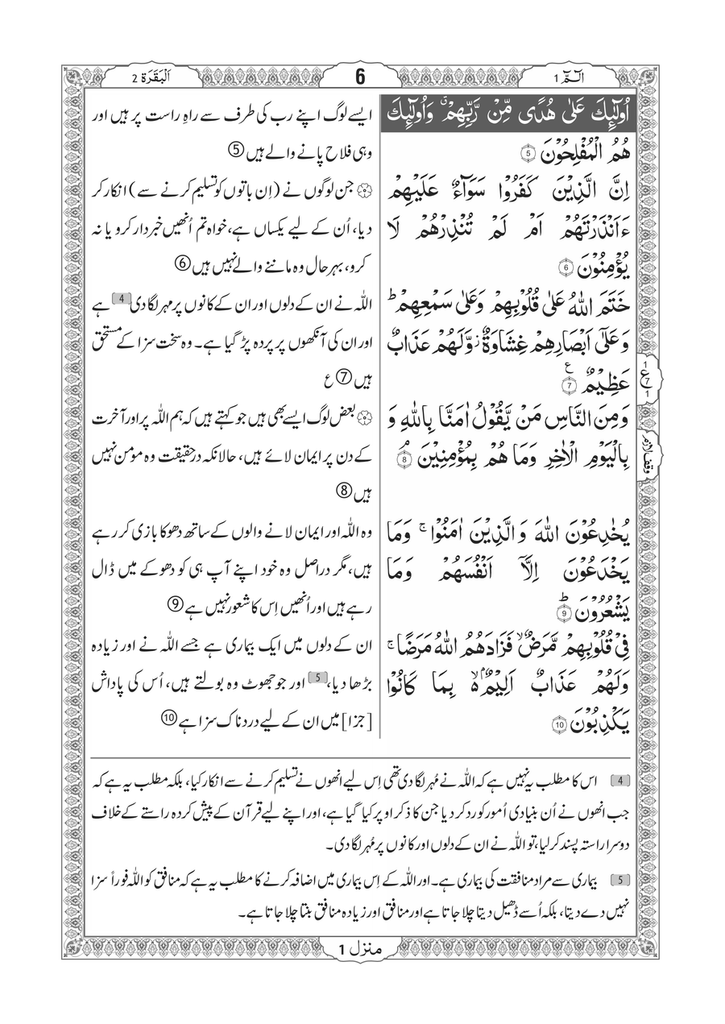 الٓمّٓ 1
6
اَلْبَقَرَة 2
اُولٰٓئِكَ عَلٰی هُدًی مِّنْ رَّبِّهِمْ ۗ وَاُولٰٓئِكَ
هُمُ الْمُفْلِحُوْنَ ۝5
اِنَّ الَّذِیْنَ كَفَرُوْا سَوَآءٌ عَلَیْهِمْ
ءَاَنْذَرْتَهُمْ اَمْ لَمْ تُنْذِرْهُمْ لَا
یُؤْمِنُوْنَ ۝6
خَتَمَ اللهُ عَلٰی قُلُوْبِهِمْ وَعَلٰی سَمْعِهِمْ ؕ
وَعَلٰۤی اَبْصَارِهِمْ غِشَاوَةٌ ؗ وَّلَهُمْ عَذَابٌ
عَظِیْمٌ ۝7 ع
وَمِنَ النَّاسِ مَنْ یَّقُوْلُ اٰمَنَّا بِاللهِ وَ
بِالْیَوْمِ الْاٰخِرِ وَمَا هُمْ بِمُؤْمِنِیْنَ ۘ ۝8
یُخٰدِعُوْنَ اللهَ وَالَّذِیْنَ اٰمَنُوْا ۚ وَمَا
یَخْدَعُوْنَ اِلَّاۤ اَنْفُسَهُمْ وَمَا
یَشْعُرُوْنَ ؕ ۝9
فِیْ قُلُوْبِهِمْ مَّرَضٌ ۙ فَزَادَهُمُ اللهُ مَرَضًا ۚ
وَلَهُمْ عَذَابٌ اَلِیْمٌۢ ۙ۬ بِمَا كَانُوْا
یَكْذِبُوْنَ ۝10
ایسے لوگ اپنے رب کی طرف سے راہِ راست پر ہیں اور
وہی فلاح پانے والے ہیں ⑤
۞ جن لوگوں نے (اِن باتوں کو تسلیم کرنے سے) انکار کر
دیا، اُن کے لیے یکساں ہے، خواہ تم اُنھیں خبردار کرو یا نہ
کرو، بہرحال وہ ماننے والے نہیں ہیں ⑥
اللہ نے ان کے دلوں اور ان کے کانوں پر مہر لگا دی [4] ہے
اور ان کی آنکھوں پر پردہ پڑ گیا ہے۔ وہ سخت سزا کے مستحق
ہیں ⑦ ع
۞ بعض لوگ ایسے بھی ہیں جو کہتے ہیں کہ ہم اللہ پر اور آخرت
کے دن پر ایمان لائے ہیں، حالانکہ درحقیقت وہ مومن نہیں
ہیں ⑧
وہ اللہ اور ایمان لانے والوں کے ساتھ دھوکا بازی کر رہے
ہیں، مگر دراصل وہ خود اپنے آپ ہی کو دھوکے میں ڈال
رہے ہیں اور اُنھیں اِس کا شعور نہیں ہے ⑨
ان کے دلوں میں ایک بیماری ہے جسے اللہ نے اور زیادہ
بڑھا دیا، [5] اور جو جھوٹ وہ بولتے ہیں، اُس کی پاداش
[جزا] میں ان کے لیے دردناک سزا ہے ⑩
4 اس کا مطلب یہ نہیں ہے کہ اللہ نے مُہر لگا دی تھی اِس لیے انھوں نے تسلیم کرنے سے انکار کیا، بلکہ مطلب یہ ہے کہ
جب انھوں نے اُن بنیادی اُمور کو رد کر دیا جن کا ذکر اوپر کیا گیا ہے، اور اپنے لیے قرآن کے پیش کردہ راستے کے خلاف
دوسرا راستہ پسند کر لیا، تو اللہ نے ان کے دلوں اور کانوں پر مُہر لگا دی۔
5 بیماری سے مراد منافقت کی بیماری ہے۔ اور اللہ کے اِس بیماری میں اضافہ کرنے کا مطلب یہ ہے کہ منافق کو اللہ فوراً سزا
نہیں دے دیتا، بلکہ اُسے ڈھیل دیتا چلا جاتا ہے اور منافق اور زیادہ منافق بنتا چلا جاتا ہے۔
منزل 1